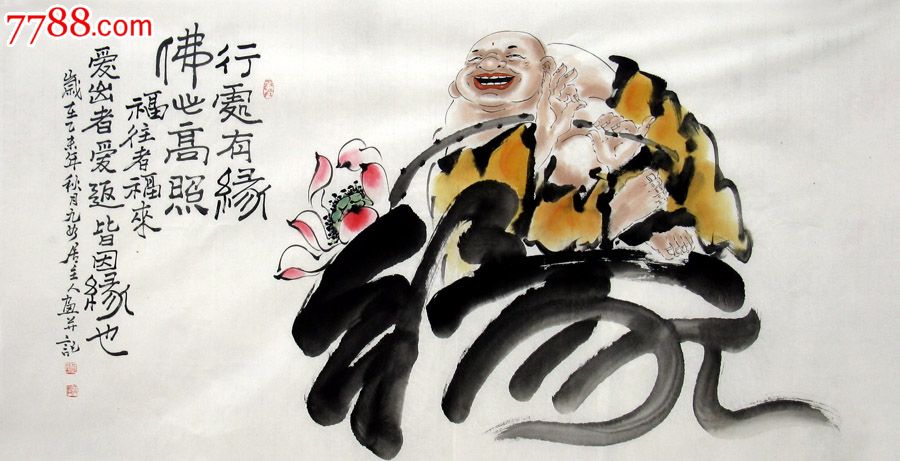 7788.com
行處有緣
佛心高照
福往者福來
愛出者愛返 皆因緣也
歲在乙未年秋月九
居主人畫并記